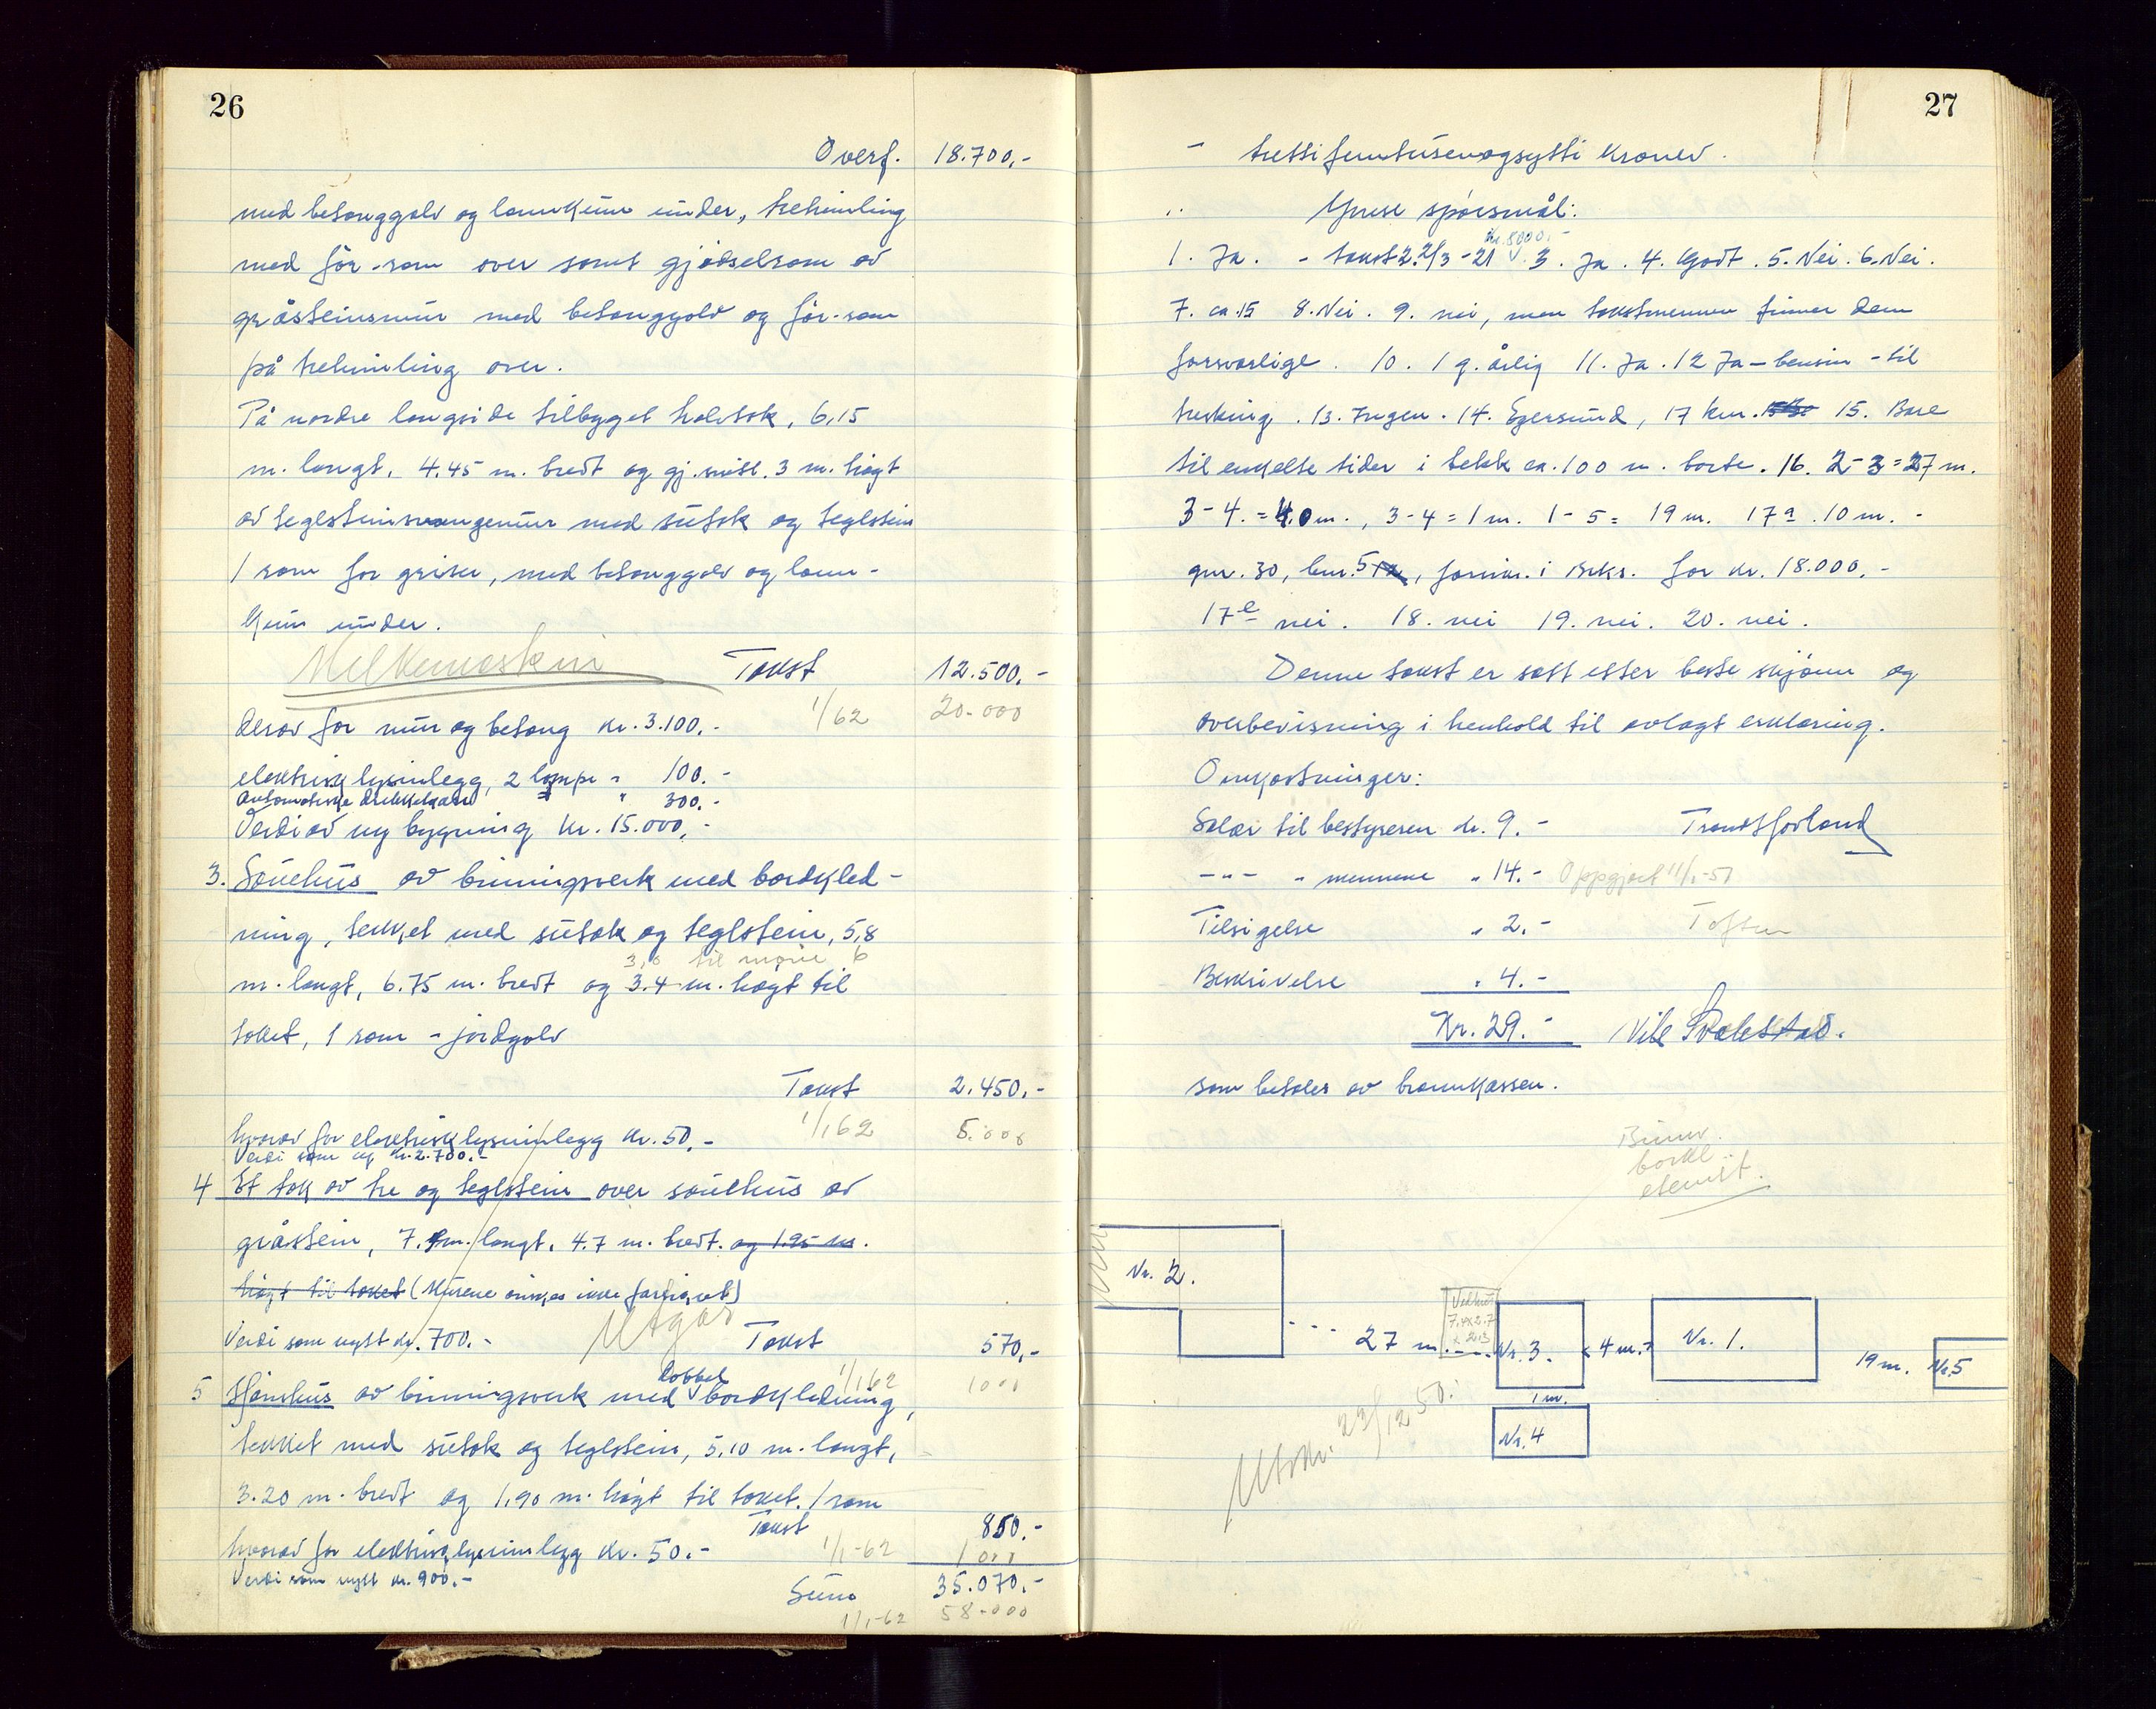 26
Overf. 18.700,-
med betonggolv og landkum under, trehimling
med fôr-rom over samt gjødselrom av
gråsteinsmur med betonggolv og fôr-rom
på trehimling over.
På nordre langside tilbygget halvtak, 6,15
m. langt, 4.45 m. bredt og gj.snitl. 3 m. høgt
av teglsteins
med sutak og teglstein
1 rom for griser, med betonggolv og land-
kum under.
Melkemaskin Takst 12.500,-
1/62 20.000
derav for mur og betong kr. 3.100,-
elektrisk lysinlegg, 2 lampe " 100.-
Automatiske drikkekar " 300.-
Verdi av ny bygning kr. 15.000,-
3. Sauehus av binningsverk med bordkled-
ning, tekket med sutak og teglstein, 5,8
3,6 til møne 6
m. langt, 6.75 m. bredt og 3.4 m. høgt til
taket, 1 rom - jordgolv
Takst 2.450,-
1/1 62 5.000
hvorav for elektrisk lysinnlegg kr. 50,-
Verdi som ny kr. 2.700.-
4 Et tak av tre og teglstein over sauehus av
gråstein, 7. m. langt, 4.7 m. bredt. og 1.95 m.
høgt til taket (Murene ønskes ikke forsikret)
Verdi som nytt kr. 700.- Utgår Takst 570,-
1/1 62 1000
dobbel
5 Hønshus av binningsverk med bordkledning,
tekket med sutak og teglstein, 5,10 m. langt,
3.20 m. bredt og 1,90 m. høgt til taket. 1 rom
Takst 850.-
hvorav for elektrisk lysinnlegg kr. 50.- 1/1-62 1000
Verdi som nytt kr. 900.-
Sum 35.070.-
1/1-62 58.000
27
- trettifemtusenogsytti kroner.
Ymse spørsmål:
kr. 8000.-
1. Ja. - takst 2. 2/3-21 3. Ja. 4. Godt. 5. Nei. 6. Nei.
7. ca. 15 8. Nei. 9. nei, men takstmennene finner dem
forsvarlige. 10. 1 g. årlig 11. Ja. 12 Ja - bensin - til
tresking. 13. Ingen. 14. Egersund, 17 km. 15. Bare
til enkelte tider i bekk ca. 100 m. borte. 16. 2-3=27 m.
3-4.=4,0 m., 3-4=1 m. 1-5= 19 m. 17a. 10 m. -
gnr. 30, bnr. 5, forsikr. i Brks. for kr. 18.000.-
17e nei. 18. nei 19. nei. 20. nei.
Denne takst er satt etter beste skjønn og
overbevisning i henhold til avlagt erklæring.
Omkostninger:
Salær til bestyreren kr. 9.- Trond Hovland
-"- " mennene " 14.- Oppgjort 11/1-51
Tilsigelse " 2.-
Beskrivelse " 4.-
Kr. 29.-
som betales av brannkassen.
Binnv.
bordkl.
Nr. 2.
27 m.
Vedhus
Nr. 3.
4 m.
Nr. 1.
19 m. Nr. 5
1 m.
Nr. 4
Utskr. 23/12 50.